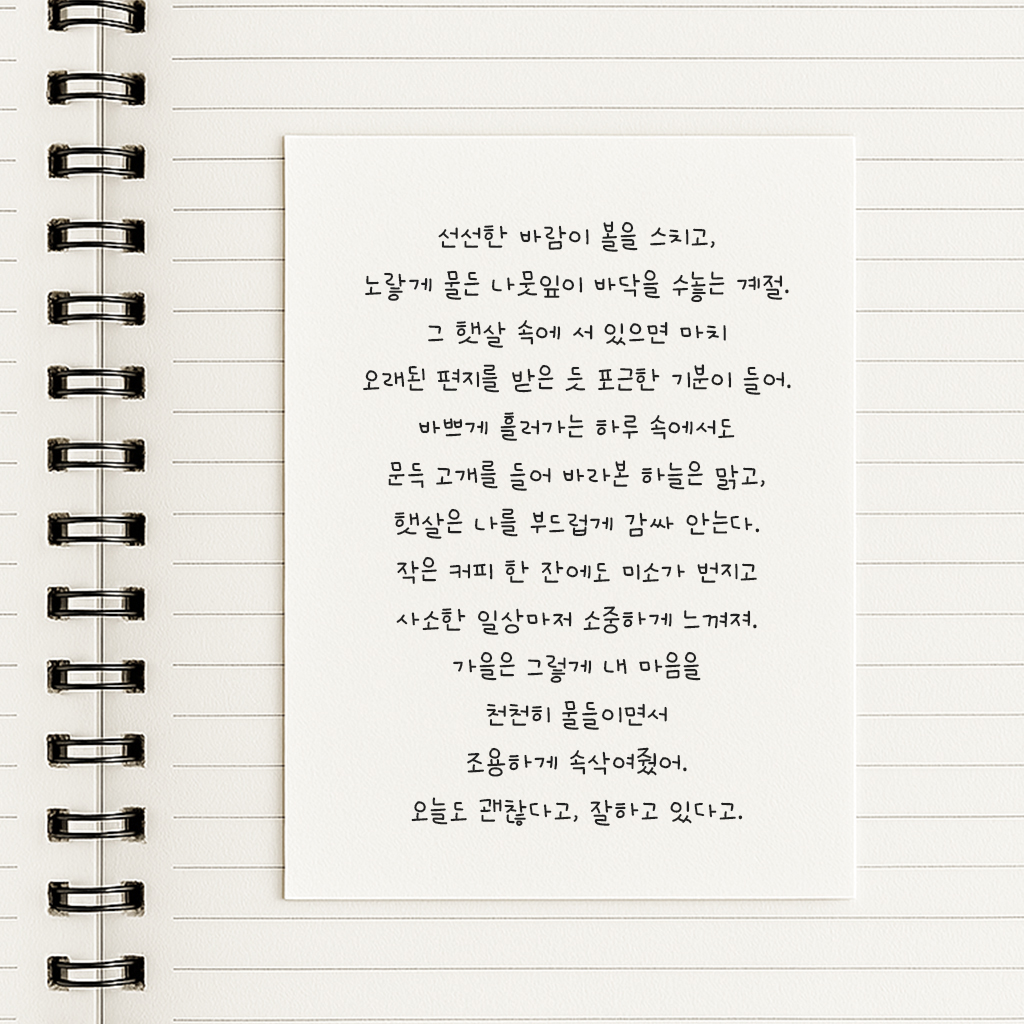 선선한 바람이 볼을 스치고,
노랗게 물든 나뭇잎이 바닥을 수놓는 계절.
그 햇살 속에 서 있으면 마치
오래된 편지를 받은 듯 포근한 기분이 들어.
바쁘게 흘러가는 하루 속에서도
문득 고개를 들어 바라본 하늘은 맑고,
햇살은 나를 부드럽게 감싸 안는다.
작은 커피 한 잔에도 미소가 번지고
사소한 일상마저 소중하게 느껴져.
가을은 그렇게 내 마음을
천천히 물들이면서
조용하게 속삭여줬어.
오늘도 괜찮다고, 잘하고 있다고.